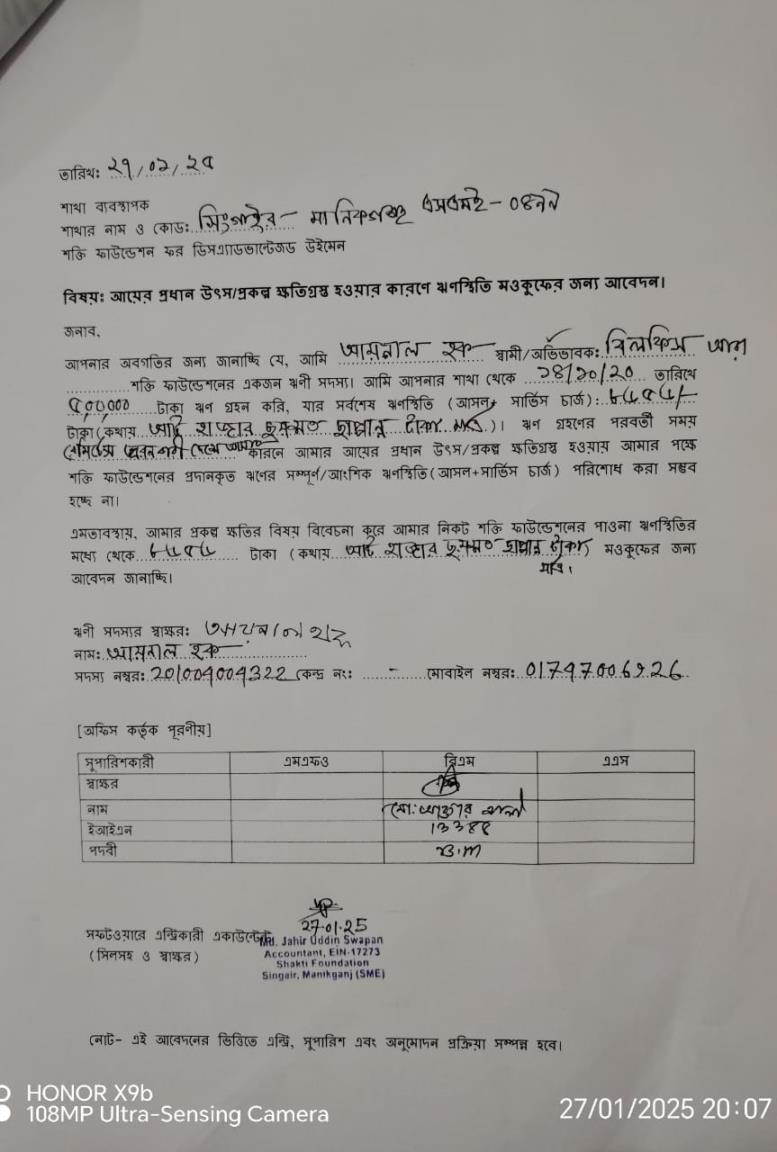 তারিখ: ২৭/০১/২৫
শাখা ব্যবস্থাপক
শাখার নাম ও কোড: সিংগাইর - মানিকগঞ্জ এসএমই - ০৪৭৭
শক্তি ফাউন্ডেশন ফর ডিসএ্যাডভান্টেজড উইমেন
বিষয়: আয়ের প্রধান উৎস/প্রকল্প ক্ষতিগ্রস্ত হওয়ার কারণে ঋণস্থিতি মওকুফের জন্য আবেদন।
জনাব,
আপনার অবগতির জন্য জানাচ্ছি যে, আমি আয়নাল হক স্বামী/অভিভাবক: বিলকিস
শক্তি ফাউন্ডেশনের একজন ঋনী সদস্য। আমি আপনার শাখা থেকে ১৪/১০/২০ তারিখে
৫০,০০০ টাকা ঋণ গ্রহন করি, যার সর্বশেষ ঋণস্থিতি (আসল+ সার্ভিস চার্জ):
টাকা (কথায় আট হাজার ছাপ্পান্ন টাকা মাত্র)। ঋণ গ্রহণের পরবর্তী সময়
কারনে আমার আয়ের প্রধান উৎস/প্রকল্প ক্ষতিগ্রস্ত হওয়ায় আমার পক্ষে
শক্তি ফাউন্ডেশনের প্রদানকৃত ঋণের সম্পূর্ণ/আংশিক ঋণস্থিতি (আসল+সার্ভিস চার্জ) পরিশোধ করা সম্ভব
হচ্ছে না।
এমতাবস্থায়, আমার প্রকল্প ক্ষতির বিষয় বিবেচনা করে আমার নিকট শক্তি ফাউন্ডেশনের পাওনা ঋণস্থিতির
মধ্যে থেকে টাকা (কথায় আট হাজার ছাপ্পান্ন টাকা মাত্র। মওকুফের জন্য
আবেদন জানাচ্ছি।
ঋনী সদস্যর স্বাক্ষর: আয়নাল হক
নাম: আয়নাল হক
সদস্য নম্বর: 201004004322 কেন্দ্র নং: - মোবাইল নম্বর:
[অফিস কর্তৃক পূরণীয়]
সুপারিশকারী এমএফও বিএম এএস
স্বাক্ষর
নাম মো:
ইআইএন 13388
পদবী B.M
27-01-25
সফটওয়ারে এন্ট্রিকারী একাউন্টেন্ট
(সিলসহ ও স্বাক্ষর)
Md. Jahir Uddin Swapan
Accountant, EIN-17273
Shakti Foundation
Singair, Manikganj (SME)
নোট- এই আবেদনের ভিত্তিতে এন্ট্রি, সুপারিশ এবং অনুমোদন প্রক্রিয়া সম্পন্ন হবে।
HONOR X9b
108MP Ultra-Sensing Camera
27/01/2025 20:07